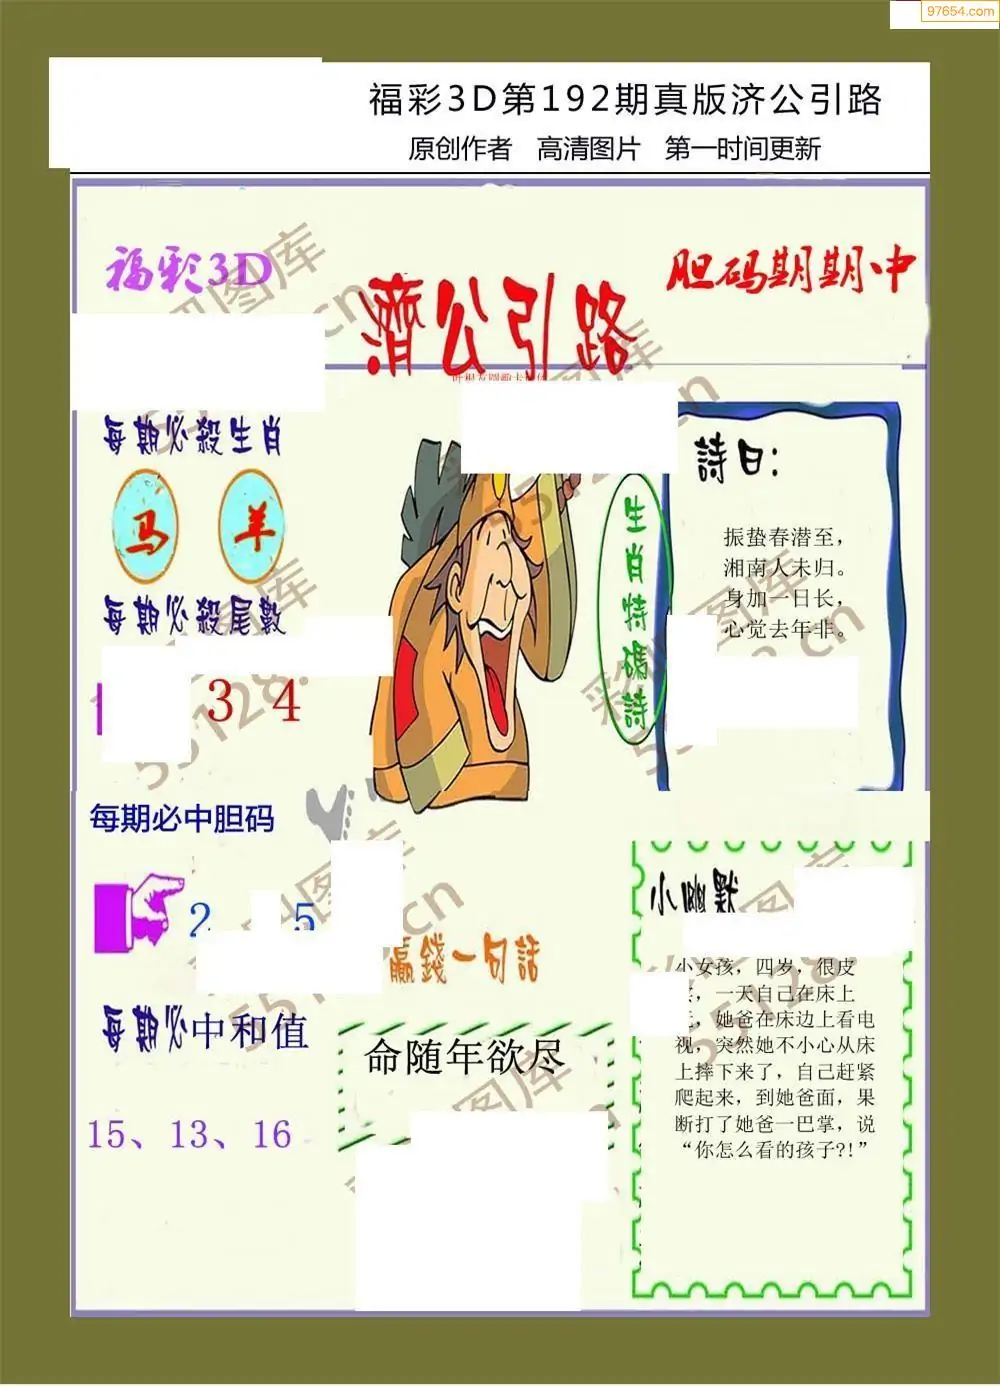 97654.com
福彩3D第192期真版济公引路
原创作者 高清图片 第一时间更新
福彩3D
胆码期期中
濟公引路
每期必殺生肖
马 羊
每期必殺尾數
3 4
詩曰：
振蛰春潜至，
湘南人未归。
身加一日长，
心觉去年非。
生肖特碼詩
每期必中胆码
2 5
贏錢一句話
命随年欲尽
每期必中和值
15、13、16
小幽默
小女孩，四岁，很皮
，一天自己在床上
，她爸在床边上看电
视，突然她不小心从床
上摔下来了，自己赶紧
爬起来，到她爸面，果
断打了她爸一巴掌，说
“你怎么看的孩子?!”
彩吧图库
55128.cn